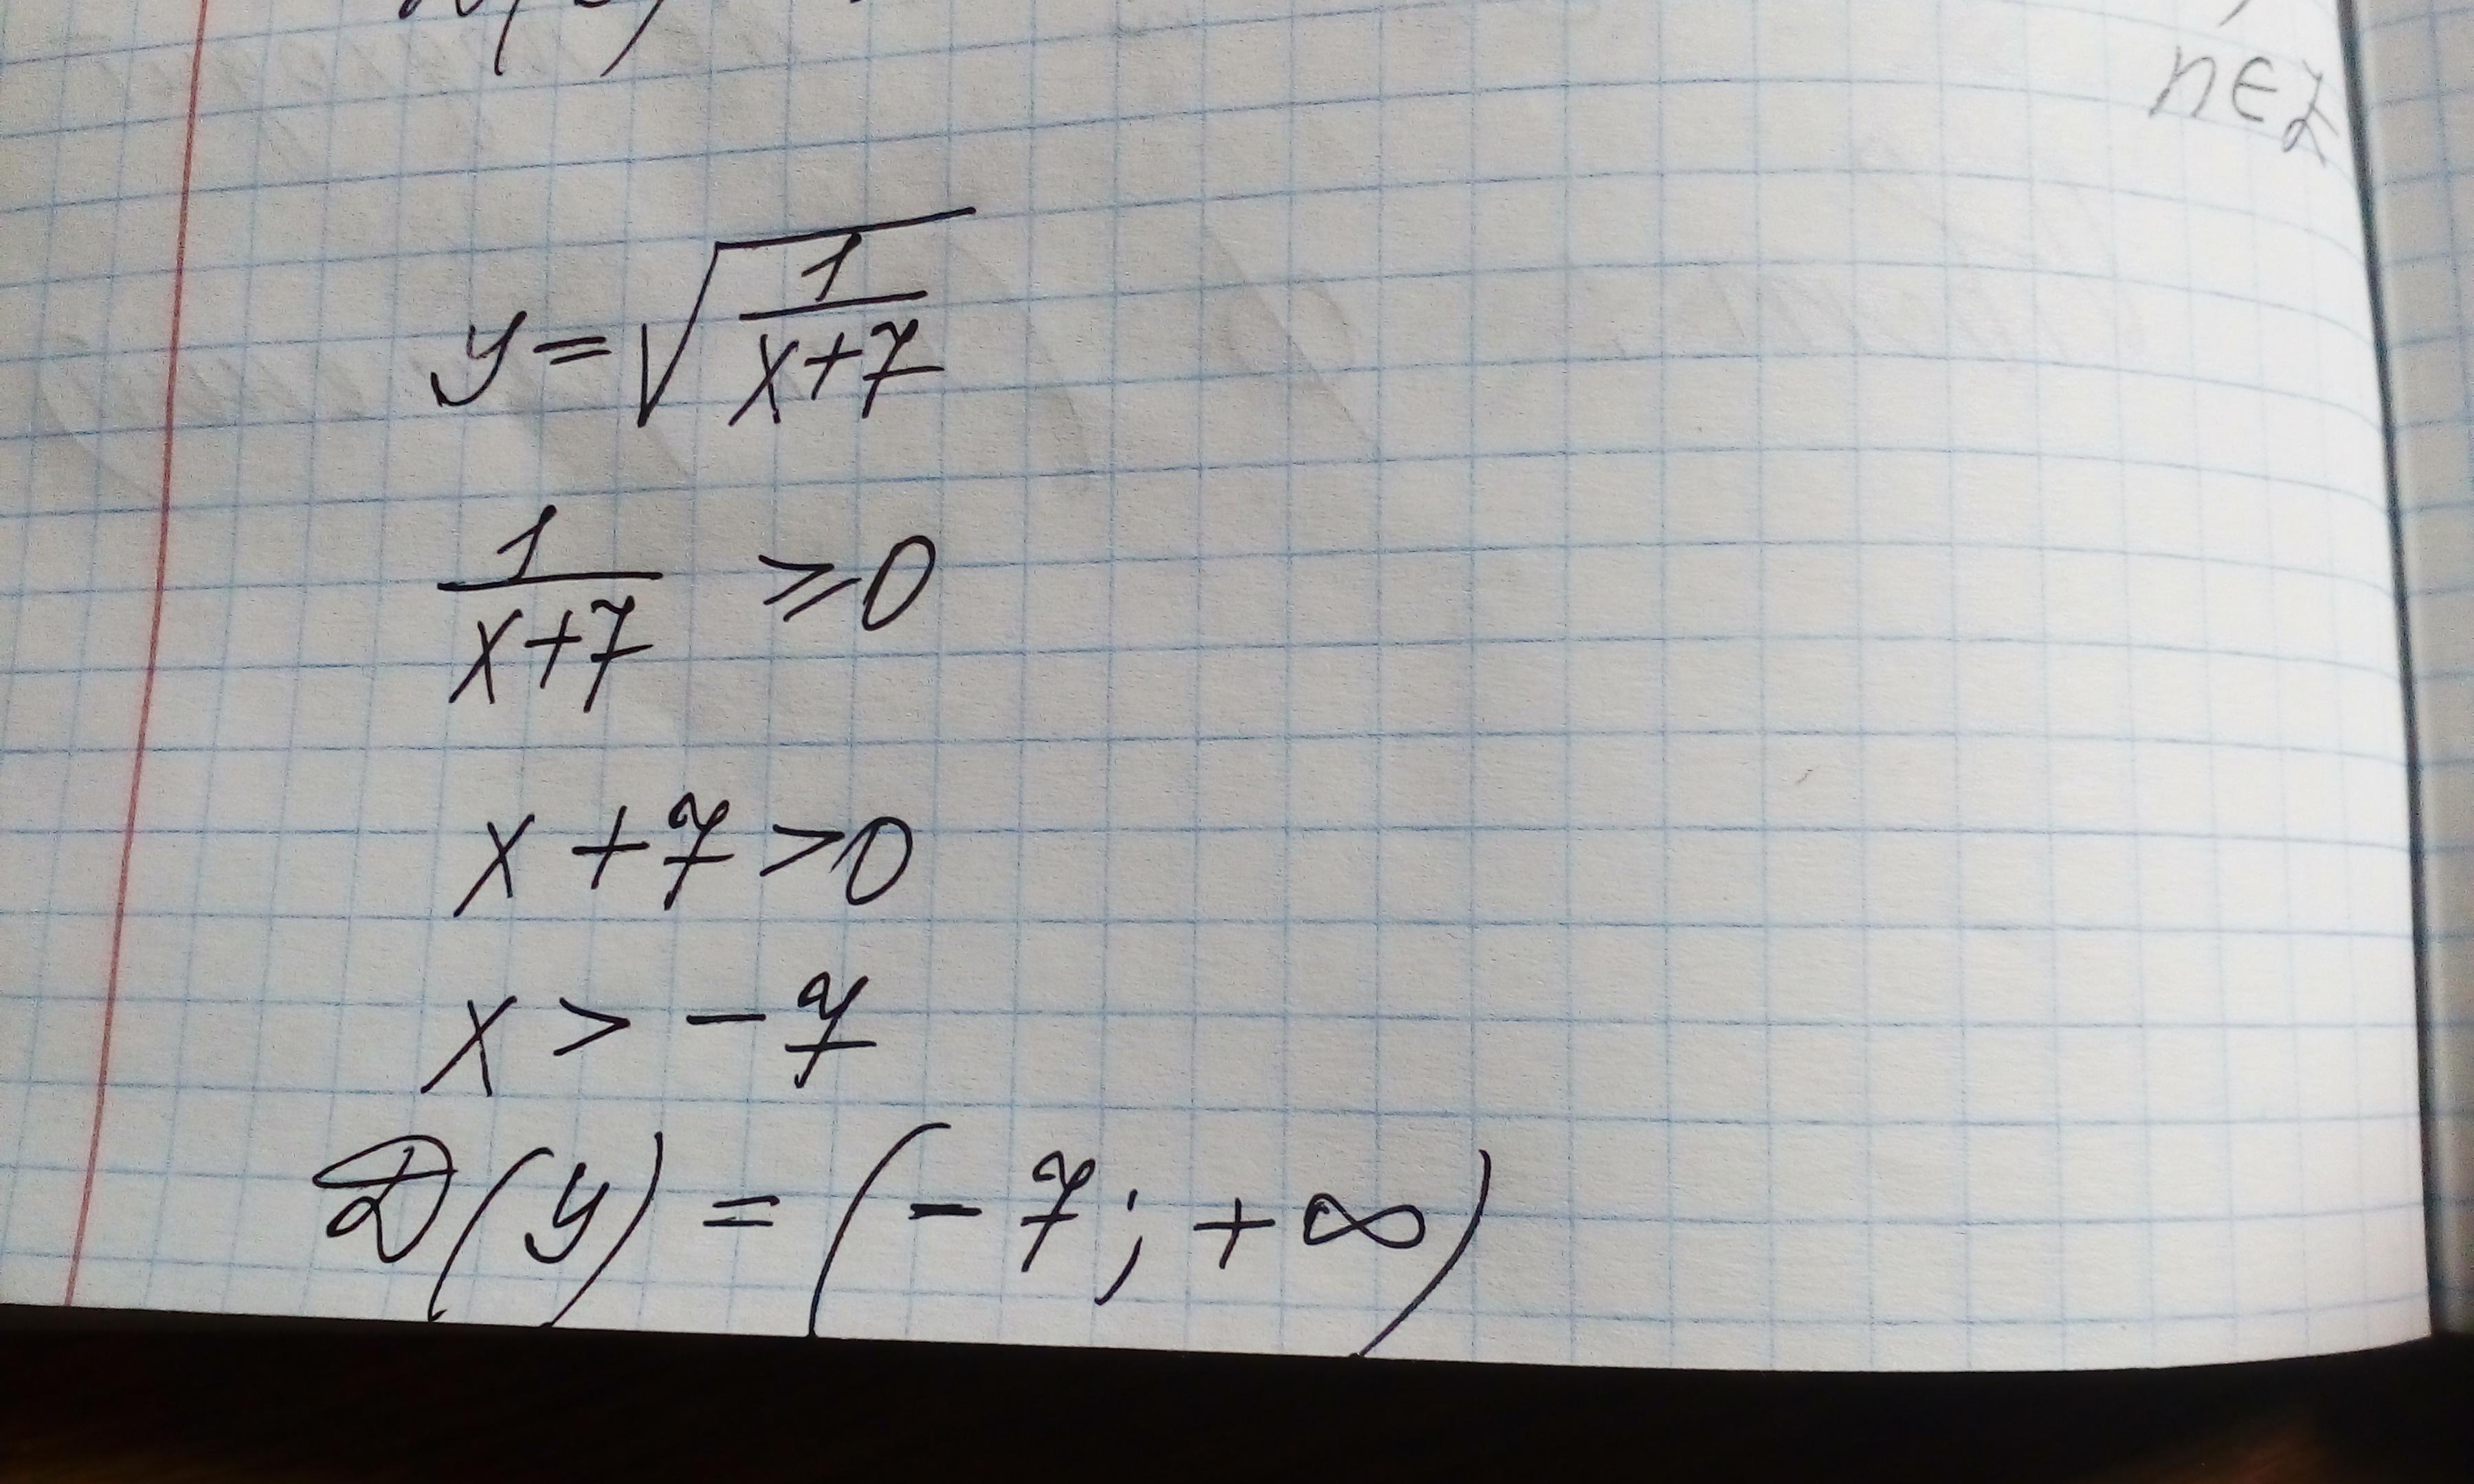 n∈Z
y=√(1/(x+7))
1/(x+7) ⩾0
x+7>0
x>-7
D(y)=(-7;+∞)